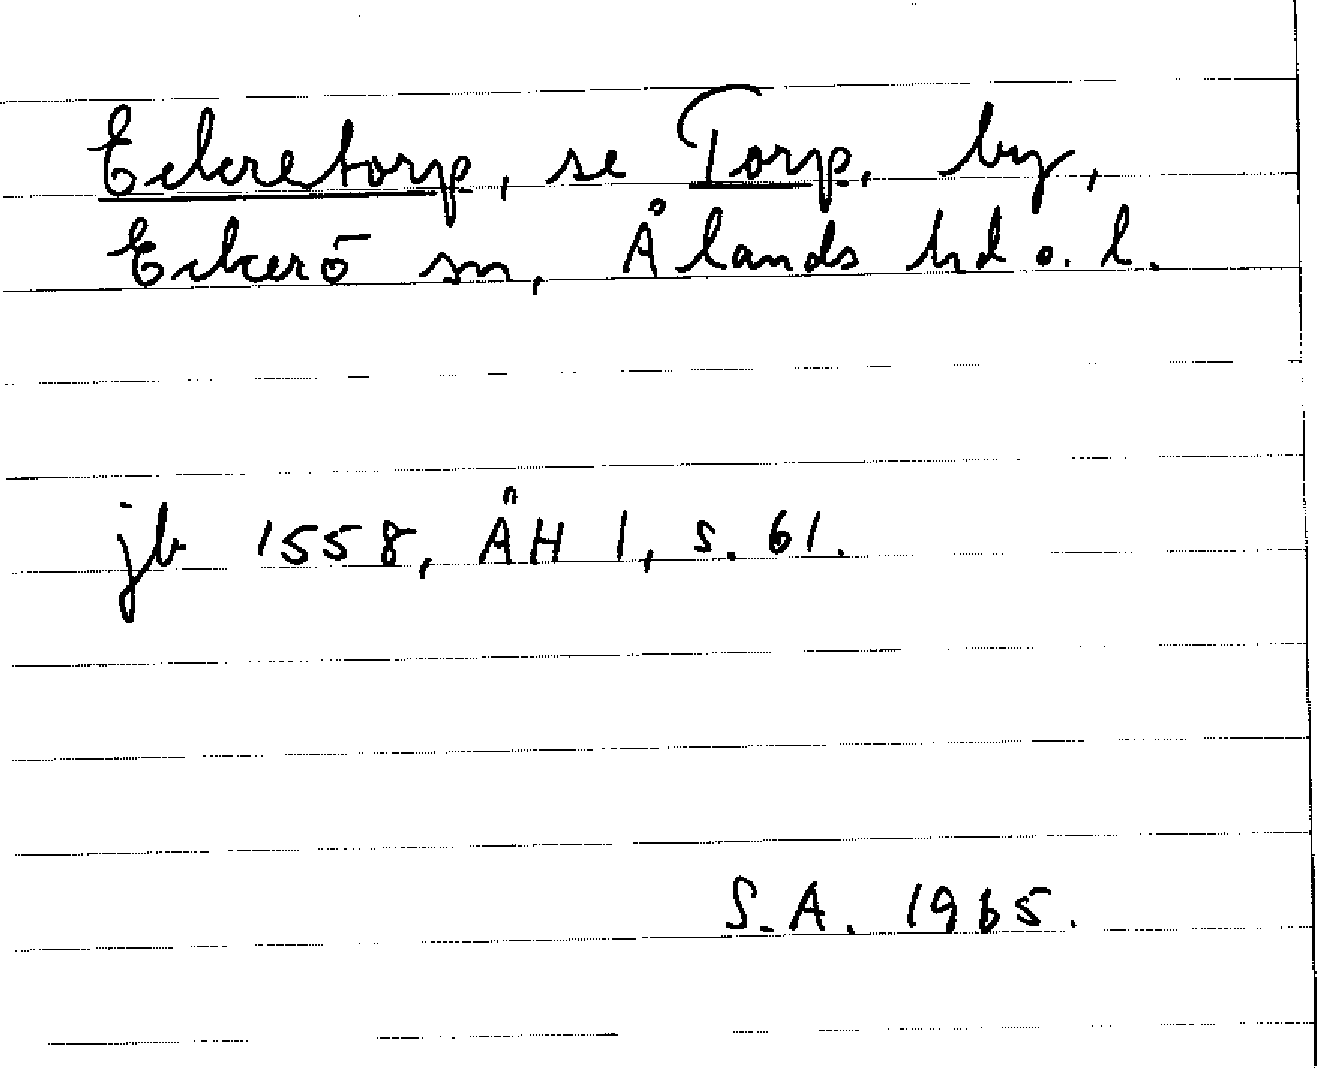 Eckretorp, se Torp, by,
Eckerö sn, Ålands hd o. l.
jb 1558, ÅH 1, s. 61.
S.A. 1965.